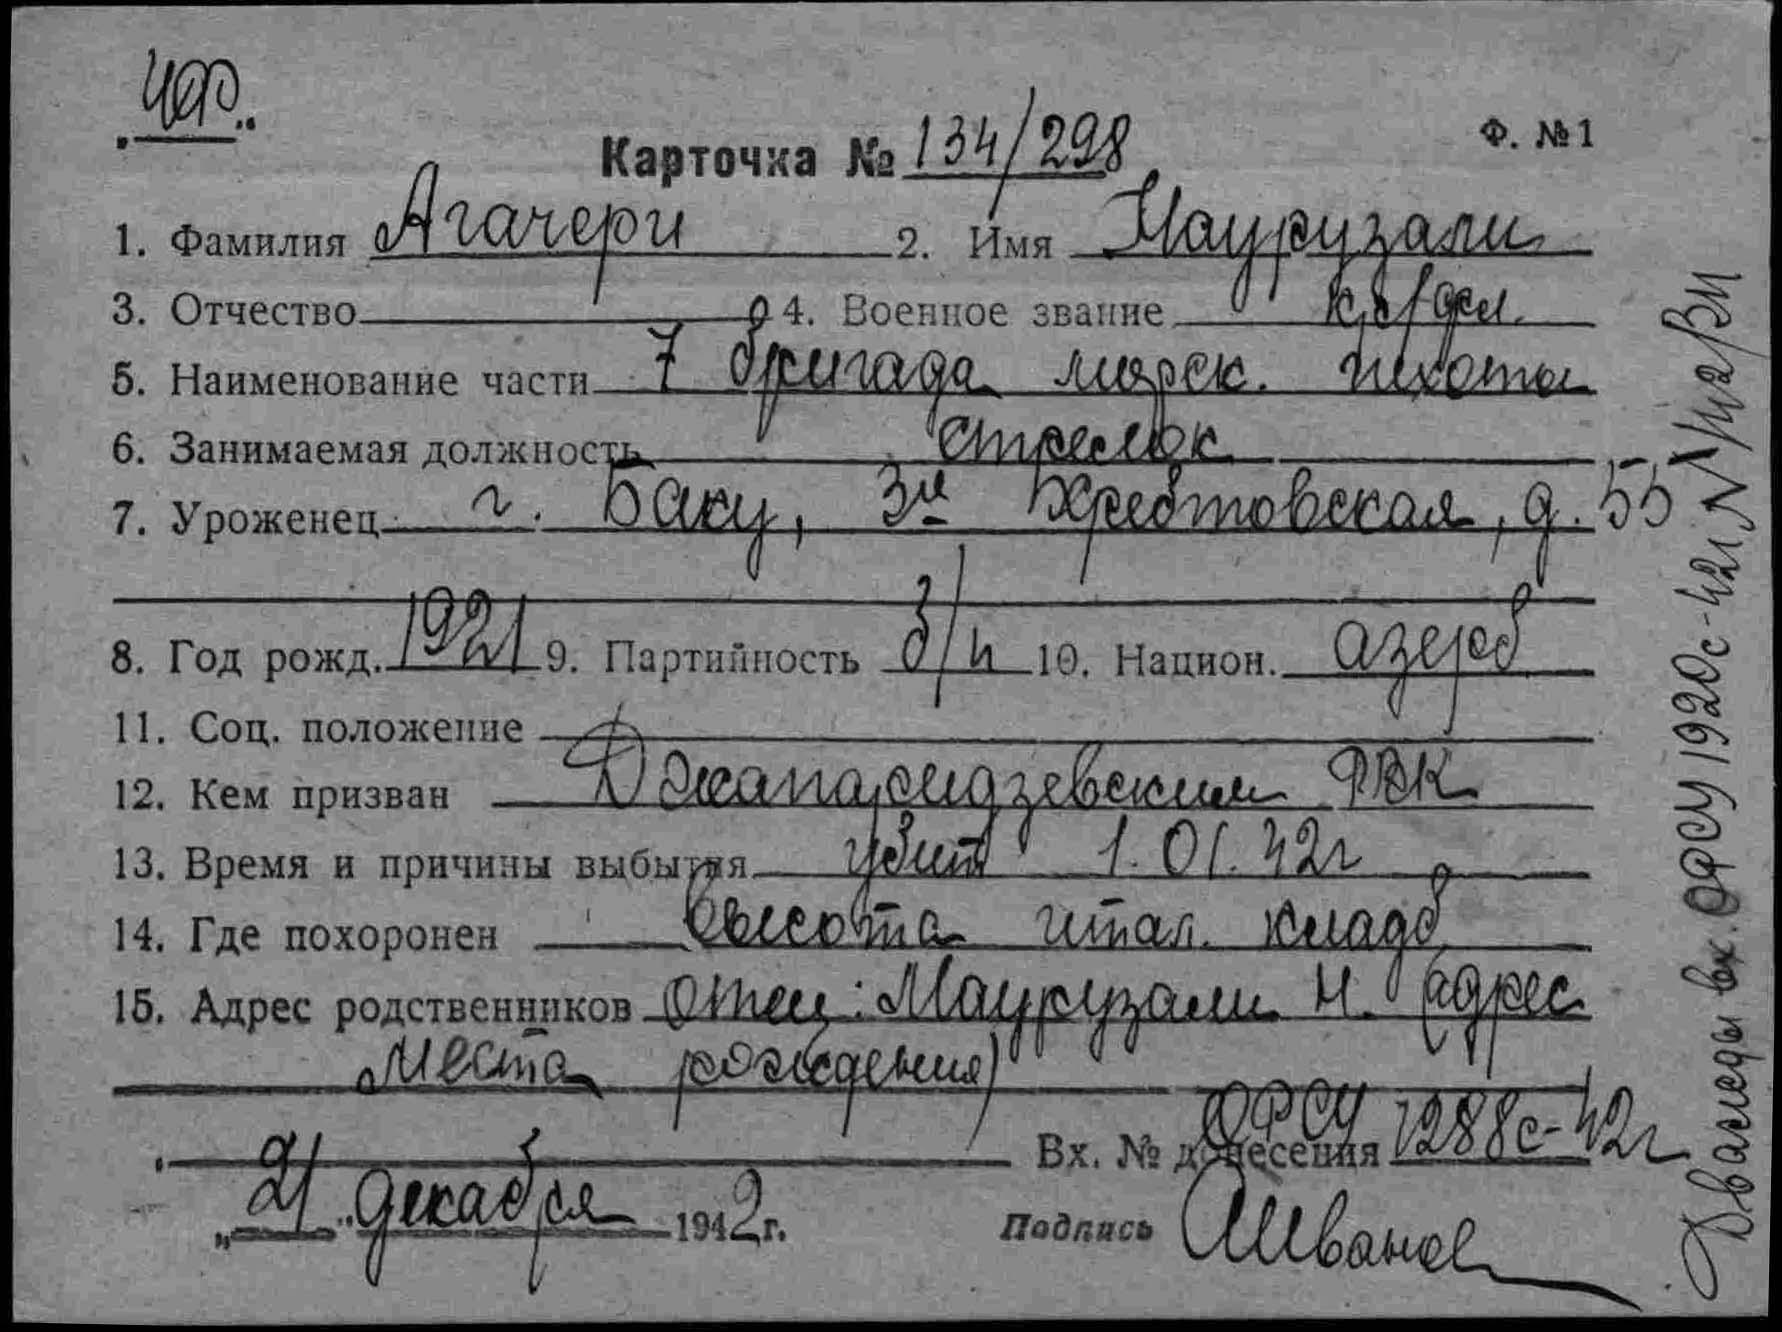 ЧФ
Карточка № 134/298
Ф. № 1
1. Фамилия Агачери 2. Имя Наурузали
3. Отчество 4. Военное звание кр/фл.
5. Наименование части 7 бригада морск. пехоты
6. Занимаемая должность стрелок
7. Уроженец г. Баку, 3я Хребтовская, д. 55
8. Год рожд. 1921 9. Партийность б/п 10. Национ. азерб
11. Соц. положение
12. Кем призван Джапаридзевским РВК
13. Время и причины выбытия убит 1.01.42г
14. Где похоронен высота итал. кладб
15. Адрес родственников отец: Маурузали Н. (адрес
места рождения)
Вх. № донесения ОФСУ 1288с-42г
„21" декабря 1942г.
Подпись АИванов
Дважды вх. ОФСУ 1920с-42г